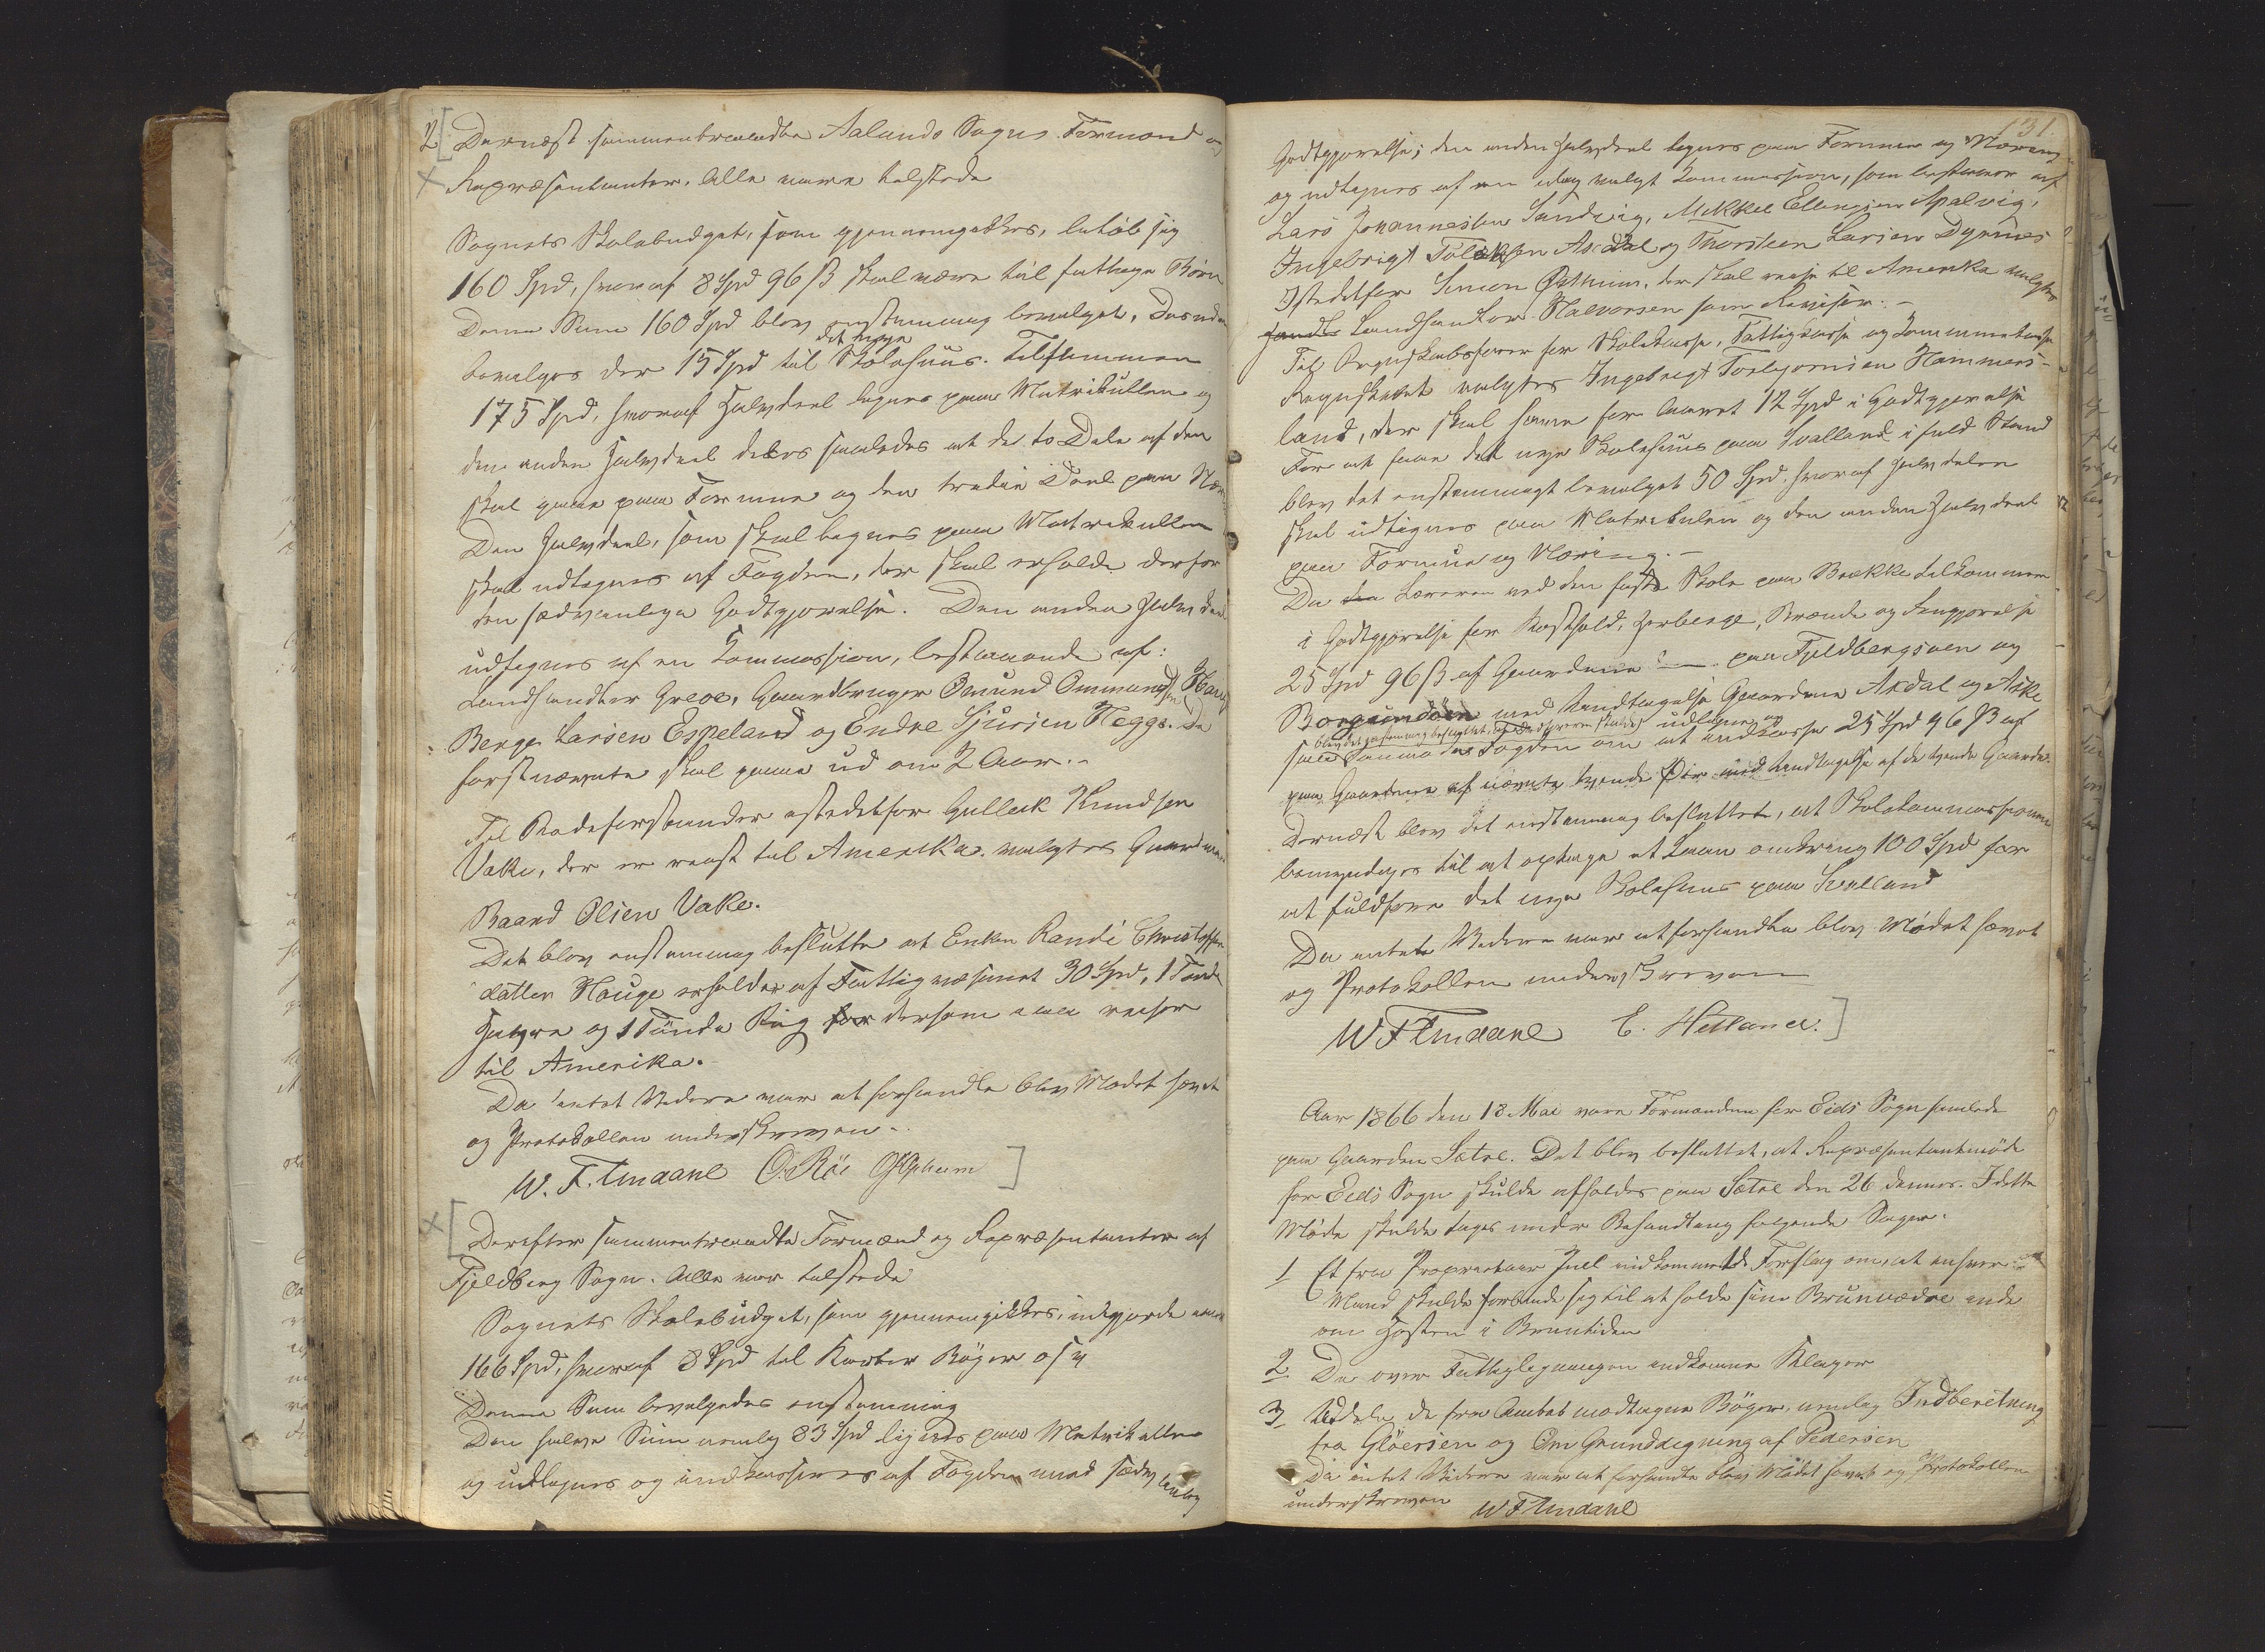 2 Dernæst sammentraadte Aalunds Sogns Formænd og
Repræsentanter. Alle vare tilstede
Sognets Skolebudget, som gjennemgaaes, beløb sig
160 Spd, hvoraf 8 Spd 96 ß skal være til fattige Børn
Denne Sum 160 Spd blev enstemmig bevilget. Desuden
det nye
bevilges der 15 Spd til Skolehuus. Tilsammen
175 Spd, hvoraf Halvdeel lignes paa Matrikullen og
den anden Halvdeel deles saaledes at de to Dele af den
skal gaae paa Formue og den tredie Deel paa Næ-
Den Halvdeel, som skal lignes paa Matrikullen
skal udlignes af Fogden, der skal erholde derfor
den sædvanlige Godtgjørelse. Den anden Halvdeel
udlignes af en Kommission, bestaaende af:
Landhandler Greve, Gaardbruger Omund Ommundsen Haug
Berge Larsen Espeland og Endre Sjursen Hegge. De
førstnævnte skal gaae ud om 2 Aar.-
Til Rodeforstander istedetfor Gulleik Knudsen
Vake, der er reist til Amerika valgtes Gaardman
Baard Olsen Vake.
Det blev enstemmig besluttet at Enken Randi Christoffer
datter Hauge erholder af Fattigvæsenet 30 Spd, 1 Tønde
Havre og 1 Tønde Rug for dersom hun reiser
til Amerika.
Da intet Videre var at forhandle blev Mødet hævet
og Protokollen underskreven.
W. F. Tmdane O. Röe
Derefter sammentraadte Formænd og Repræsentanter af
Fjeldberg Sogn. Alle var tilstede
Sognets Skolebudget, som gjennemgikkes, udgjorde
166 Spd, hvoraf 8 Spd til Karter Bøger osv
Denne Sum bevilgedes enstemmig
Den halve Sum nemlig 83 Spd lignes paa Matrikullen
og udlignes og indkasseres af Fogden mod sædvanlig
131.
Godtgjørelse; den anden Halvdeel lignes paa Formue og Næring
og udlignes af en idag valgt Kommission, som bestaaer af
Lars Johannesen Sandvig, Mikkel Ellingsen Apalvig,
Ingebrigt Tollefsen Axdal og Thorsteen Larsen Dyrnæs
Istedetfor Simon Østhuus, der skal reise til Amerika valgtes
Landhandler Halvorsen som Revisor.-
Til Regnskabsfører for Skolekasse, Fattigkasse og Kommunekasse
Regnskabet valgtes Ingebrigt Torbjørnsen Hammers-
land, der skal have for Aaret 12 Spd i Godtgjørelse
For at faae det nye Skolehuus paa Svalland i fuld Stand
blev det enstemmigt bevilget 50 Spd. hvoraf Halvdelen
skal udlignes paa Matrikulen og den anden Halvdeel
paa Formue og Næring.-
Da Læreren ved den faste Skole paa Brekke tilkommer
i Godtgjørelse for Kosthold, Herberge, Brænde og Rengjørelse
25 Spd 96 ß af Gaardene paa Fjeldbergsøen og
Borgundöen med Undtagelse Gaardene Axdal og Aske
udligne og
saa anmodes Fogden om at indkasse 25 Spd 96 ß af
paa Gaardene af nævnte tvende Øer med Undtagelse af de tvende Gaarde.
Dernæst blev det enstemmig besluttet, at Skolekommissionen
bemyndiges til at optage et Laan omkring 100 Spd for
at fuldføre det nye Skolehuus paa Svalland
Da intet Videre var at forhandle blev Mødet hævet
og Protokollen underskreven
W F Tmdane E. Hetland.
Aar 1866 den 18 Mai vare Formændene for Eids Sogn samlede
paa Gaarden Sætre. Det blev besluttet, at Repræsentantmøde
for Eids Sogn skulde afholdes paa Sætre den 26 dennes. I dette
Møde skulde tages under Behandling følgende Sager.
1 Et fra Proprietair Juel indkommet Forslag om, at enhver
Mand skulde forbinde sig til at holde sine Brunvædre inde
om Høsten i Bruntiden
2. De over Fattigligningen indkomne Klager
3 Uddele de fra Amtet modtagne Bøger, nemlig Indberetning
fra Gløersen og Om Grunddigning af Pedersen
Da intet Videre var at forhandle blev Mødet hævet og Protokollen
underskreven W F Tmdane